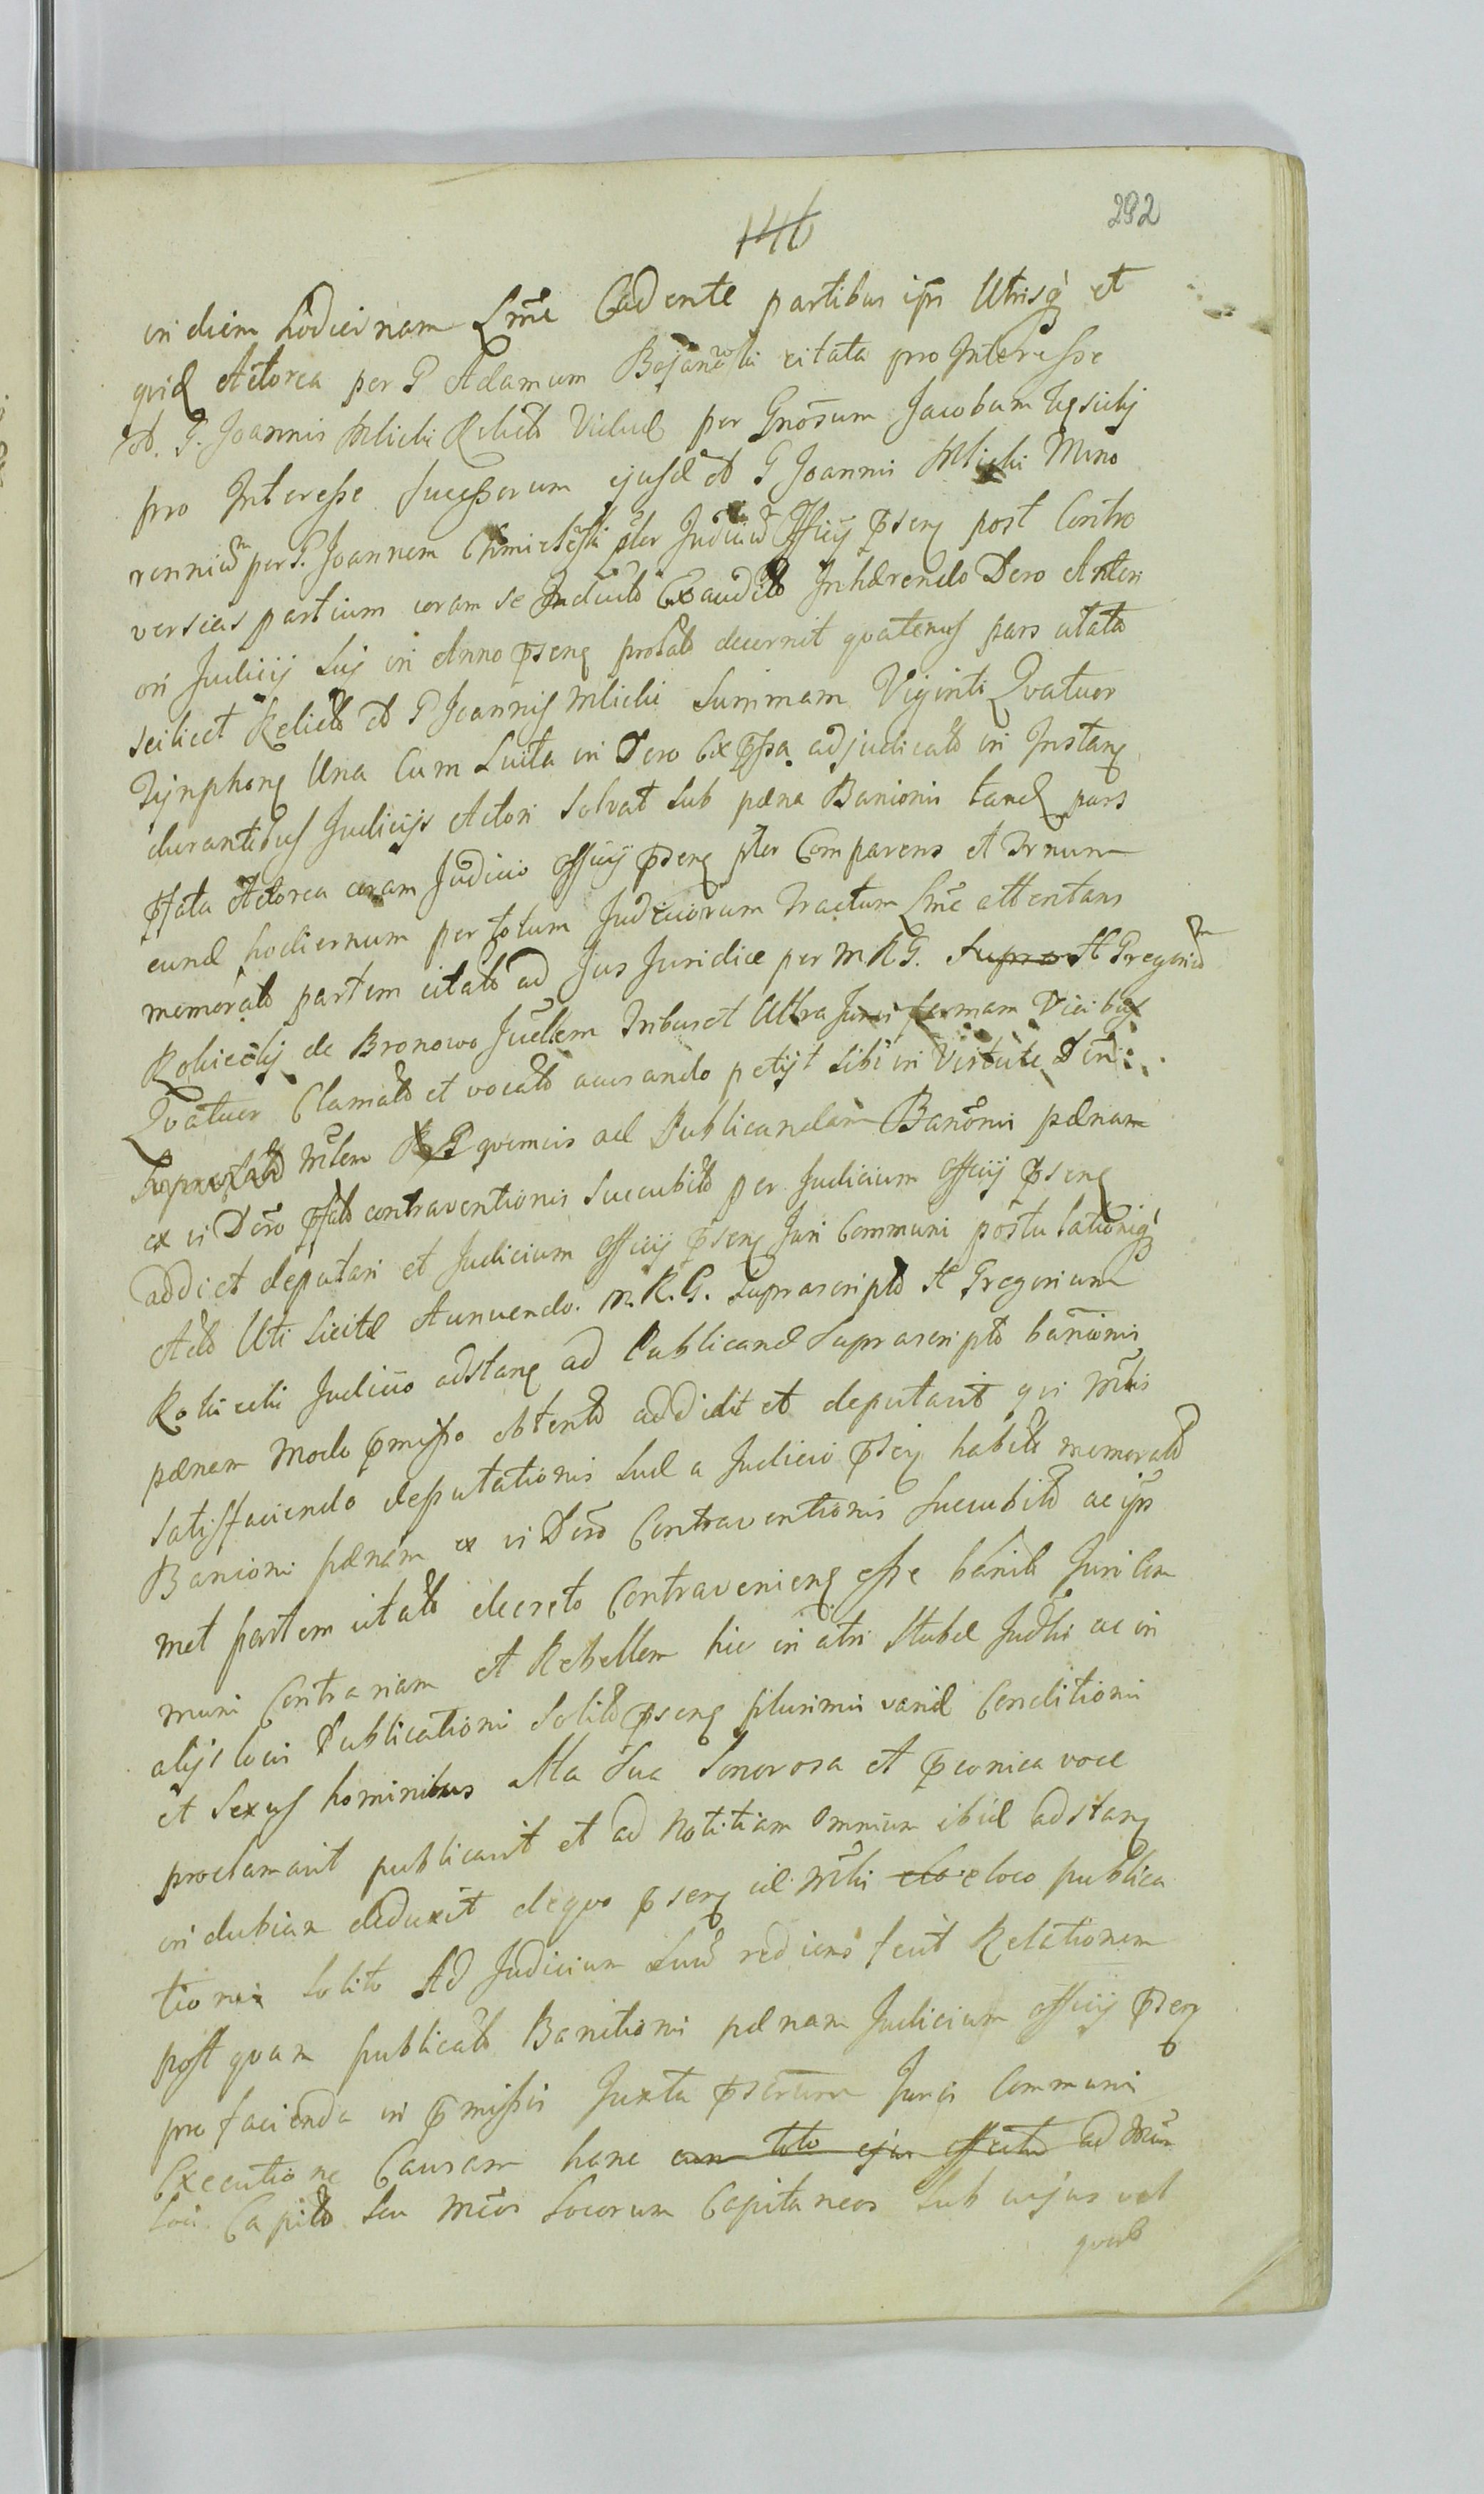 292
146
in diem hodiernam Lîme Cadente partibus ips Utrisq et
quid Actorea per G Adamum Bojanowski citata pro Interesse
ol. G. Joannis Mlicki Relicta Vidua per Gnosum Jacobum
pro Interesse Successorum ejusd ol G Joannis Mlicki Mino
rennium per G. Joannem Chmielewski pter Judicium Officij pseng post Contro
versias partium coram se Judicialr Exaudita Inhærendo Dcro Anteri
ori Judicij Suj in Anno pseng prolato decernit quatenus pars citata
scilicet Relicta ol G Joannis Mlicki Summam Viginti Quatuor
Tijnphong Una Cum Luita in Dcro Expssa adjudicato in Instang
durantibus Judicijs Actori Solvat Sub pæna Banionis tand pars
pfata Actorea coram Judicio Officij pseng pter Comparens et Trnum
eund hodiernum per totum Judiciorum Tractum Lîme attentans
memorato partem citato ad Jus Juridice per M R G. Supra A Gregorium
Robiecki de Bronowo Juellem Tribus et Ultra Juris formam Vicibus
Quatuor Clamato et vocato acusando petijt Sibi in Virtute Dcri
M R G quemvis ad Publicandam Banonis pænam
ex vi Dcro pfato contraventionis Succubito per Judicium Officij pseng
addi et deputari et Judicium Officij pseng Juri Communi postulationiq
Acto Uti Licitæ Annuendo. M. R. G. Suprascripto A Gregorium
Robiecki Judicio adstang ad Publicand Suprascripto banionis
pænam Modo pmisso obtento addidit et deputavit qui Mtlis
Satisfaciendo deputationis Suæ a Judicio pseng habito memorato
Banionis pænam ex vi Dcro Contraventionis Succubito ac ips
met partem citato decreto Contravenieng esse banito Juri Com
muni Contrariam et Rebellem hic in atri Stubæ Judli ac in
alijs locis Publicationi Solito pseng plurimis variæ Conditionis
et Sexus hominibus Alta Sua Sonorosa et pconica voce
proclamavit publicavit et ad Notitiam Omnium ibid adstang
indubiam deduxit dequo pseng id Mtlis e loco publica
tionis Solito Ad Judicium Suum rediens fecit Relationem
post quam publicato Banitionis pænam Judicium Officij pseng
pro facienda in pmissis Juxta pscrtum Juris Communis
Executione Causam hanc cum toto ejus effectu ad
Loci Capito Seu Locorum Capitaneos Sub cujus vel